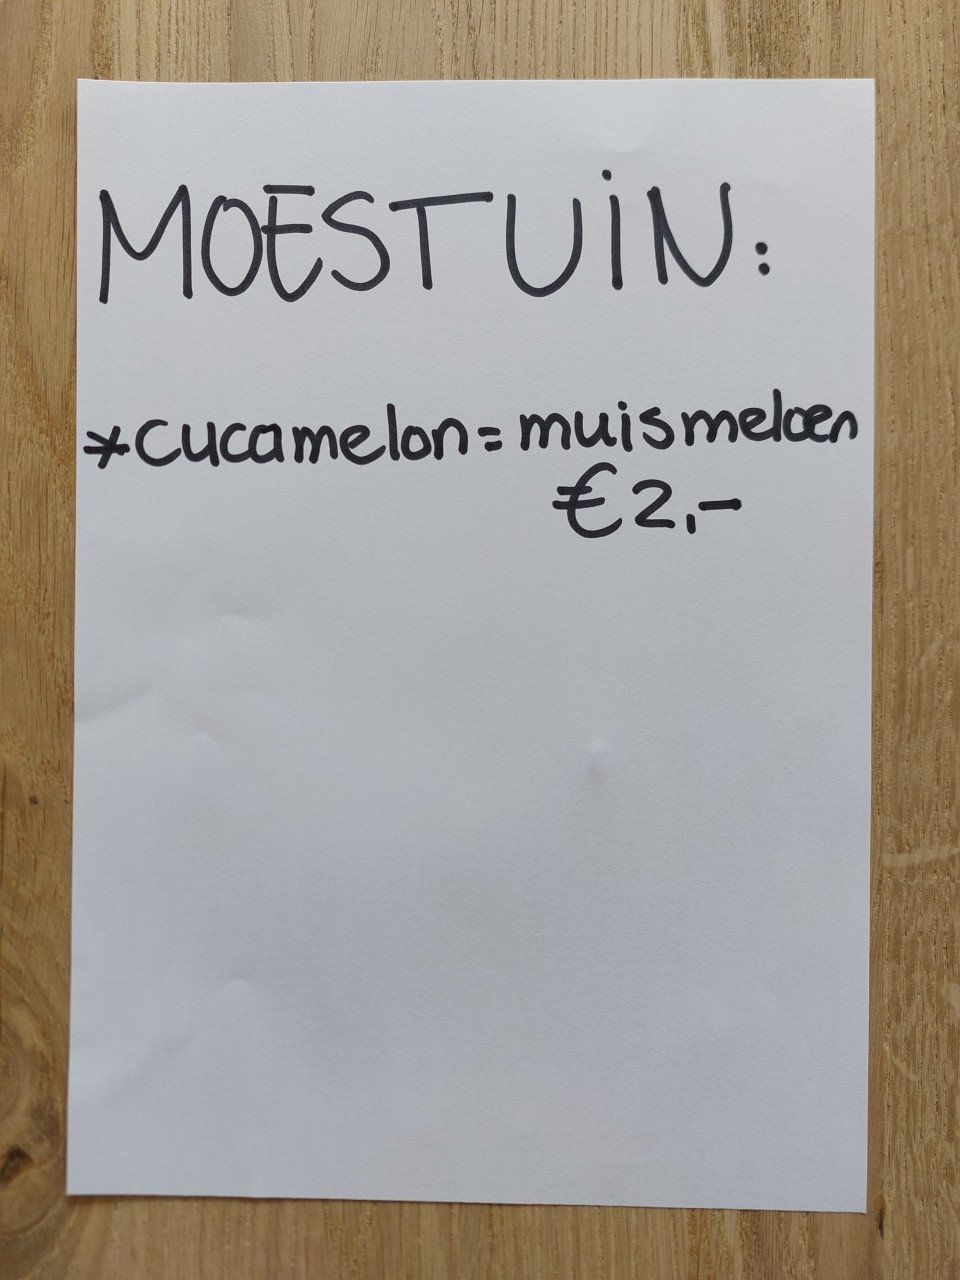 MOESTUiN:
*cucamelon = muismeloen
€2,-